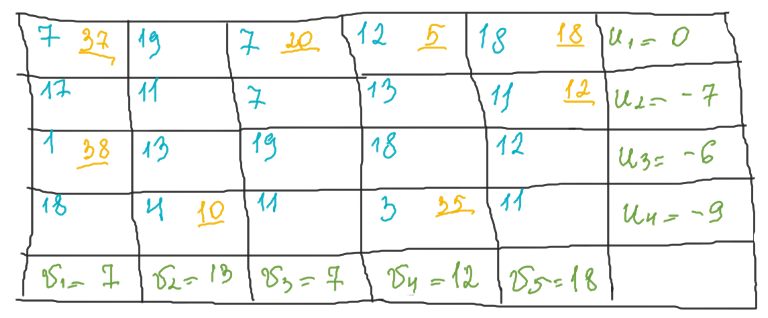 7 37 19 7 20 12 5 18 18 u₁= 0
17 11 7 13 11 12 u₂= -7
1 38 13 19 18 12 u₃= -6
18 4 10 11 3 35 11 u₄= -9
v₁= 7 v₂= 13 v₃= 7 v₄= 12 v₅= 18